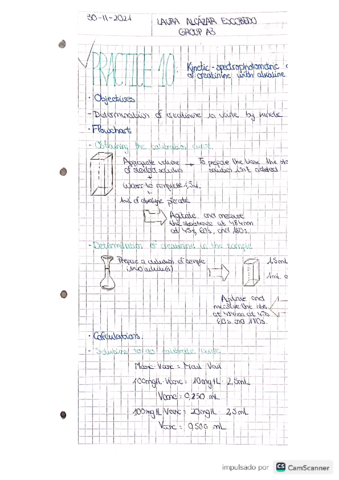 30-11-2021
LAURA ALCÁZAR ESCOBEDO
GROUP A3
PRACTICE 10:
Kinetic-spectrophotometric
of creatinine with alkaline
· Objectives
- Determination of creatinine in urine by kinetic
· Flowchart
- Obtaining the calibration curve
Appropriate volume → To prepare the base, the
of standard solution
+
Water to complete 1,5mL
+
1mL of alkaline picrate
Agitate and measure
the absorbance at 484nm
at 45s, 60s, and 180s.
- Determination of creatinine in the sample
Prepare a solution of sample
1,5mL
1mL
Agitate and
measure the abs
at 484nm at 45s
60s and 180s.
· Calculations.
Vconc = Vdil
100mg/L · Vconc = 10mg/L · 2,5mL
Vconc = 0,250 mL
100mg/L · Vconc = 20mg/L · 2,5mL
Vconc = 0,500 mL
impulsado por CS CamScanner